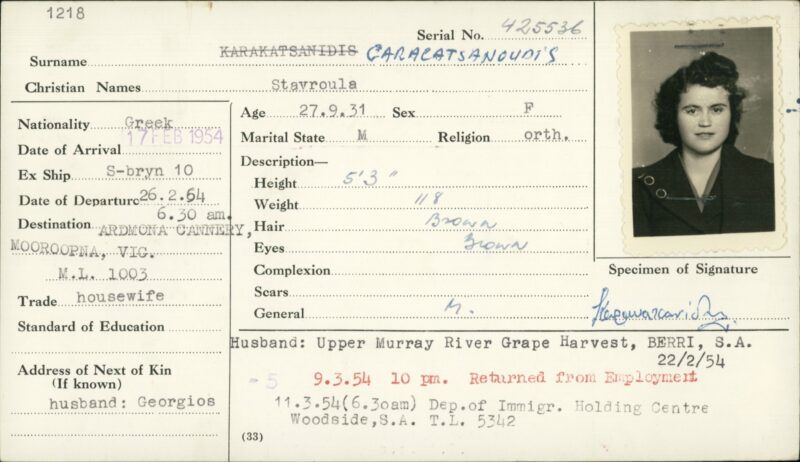 1218
Serial No. 425536
Surname KARAKATSANIDIS CARACATSANOUDIS
Christian Names Stavroula
Nationality Greek
Date of Arrival 17 FEB 1954
Ex Ship S-bryn 10
Date of Departure 26.2.64
6.30 am.
Destination ARDMONA CANNERY,
MOOROOPNA, VIC.
M.L. 1003
Trade housewife
Standard of Education
Address of Next of Kin
(If known)
husband: Georgios
Age 27.9.31 Sex F
Marital State M Religion orth.
Description—
Height 5'3"
Weight 118
Hair Brown
Eyes Brown
Complexion
Scars
General M.
Specimen of Signature
Husband: Upper Murray River Grape Harvest, BERRI, S.A.
22/2/54
- 5 9.3.54 10 pm. Returned from Employment
11.3.54(6.30am) Dep.of Immigr. Holding Centre
Woodside,S.A. T.L. 5342
(33)